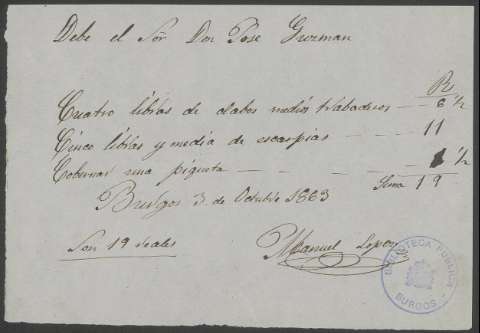 Debe el Sõr Don Jose Guzman
Rs
Cuatro libras de clabos medios trabaderos — 6 ½
Cinco libras y media de escarpias — 11
una piqueta — 1 ½
Suma 19
Burgos 3 de Octubre 1883
Son 19 reales
Manuel Lopez
BIBLIOTECA PUBLICA
BURGOS